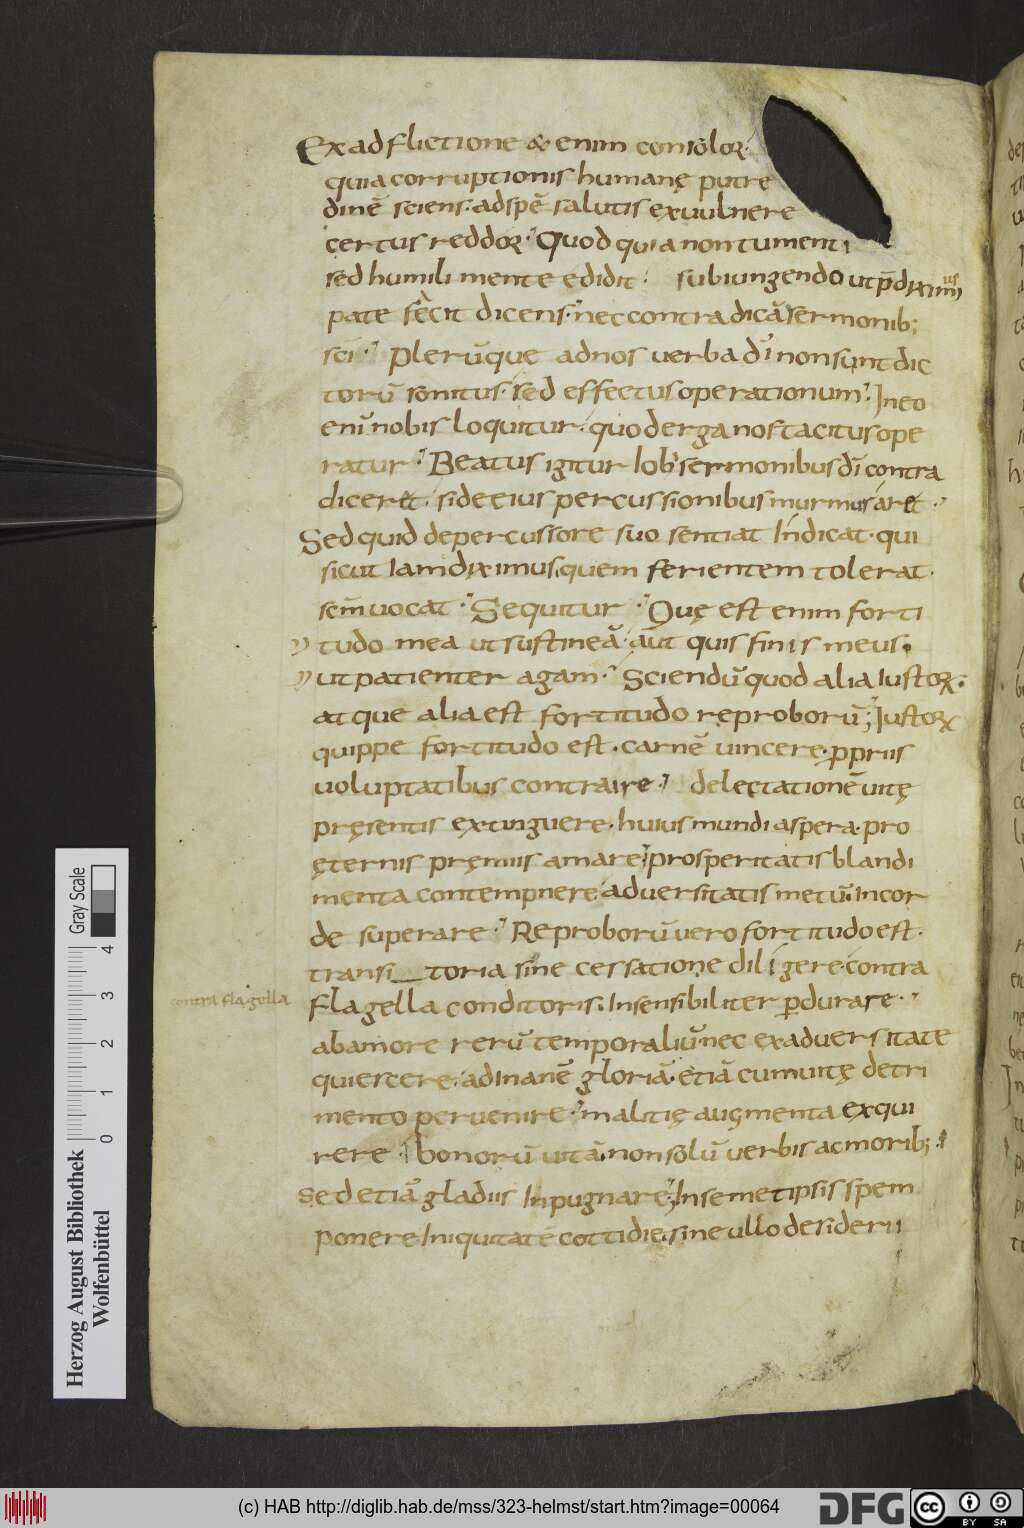 Ex adflictione & enim consolor.
quia corruptionis humanę putre
dinē sciens. ad spē salutis ex vulnere
certus reddor. Quod quia non tumenti
sed humili mente ędidit. subiungendo ut p̄diximus
patefecit dicens. nec contradicā sermonib;
sc̄i. Plerūque ad nos verba dī non sunt dic
torū sonitus. sed effectus operationum. In eo
enī nobis loquitur. quod erga nos tacitus ope
ratur. Beatus igitur Iob sermonibus dī contra
diceret. si de eius percussionibus murmuraret.
Sed quid de percussore suo sentiat Indicat. qui
sicut Iam diximus, quem ferientem tolerat.
sc̄m vocat. Sequitur. Quę est enim forti
tudo mea ut sustineā. aut quis finis meus.
ut patienter agam. Sciendū quod alia Iustoꝝ.
atque alia est fortitudo reproborū; Iustoꝝ
quippe fortitudo est. carnē uincere. ꝓpriis
uoluptatibus contraire. delectationē uitę
pręsentis extinguere. huius mundi aspera. pro
ęternis pręmiis amare. prosperitatis blandi
menta contempnere. adversitatis metū. In cor
de superare. Reproborū vero fortitudo est.
transitoria sine cessatione diligere. contra
flagella conditoris. Insensibiliter ꝑdurare.
ab amore rerū temporaliū. nec ex adversitate
quiescere. ad inanē gloriā. etiā cum uitę detri
mento pervenire. malitię augmenta exqui
rere. bonorū uitā. non solū verbis ac morib;
Sed etiā gladiis Inpugnare. In semetipsis spem
ponere. Iniquitatē cottidie. sine ullo desiderii
contra flagella
Gray Scale
0 1 2 3 4
Herzog August Bibliothek
Wolfenbüttel
(c) HAB http://diglib.hab.de/mss/323-helmst/start.htm?image=00064
DFG
cc BY SA